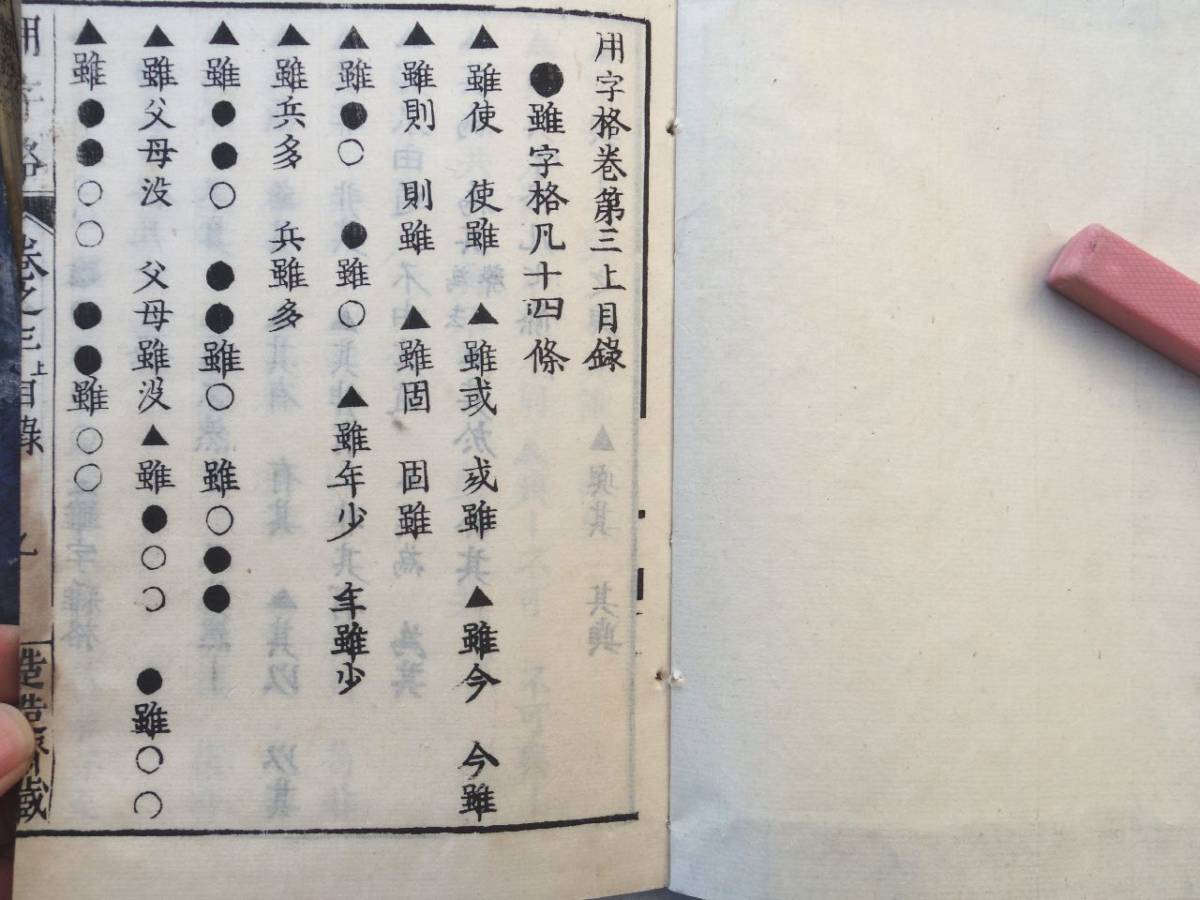 用字格卷第三上目錄
●雖字格凡十四條
▲雖使　使雖　▲雖或　或雖　▲雖今　今雖
▲雖則　則雖　▲雖固　固雖
▲雖●○　●雖○　▲雖年少　年雖少
▲雖兵多　兵雖多
▲雖●●○　●●雖○　雖○●●
▲雖父母没　父母雖没　▲雖●○○　●雖○○
▲雖●●○○　●●雖○○
用字格　卷之三上目錄